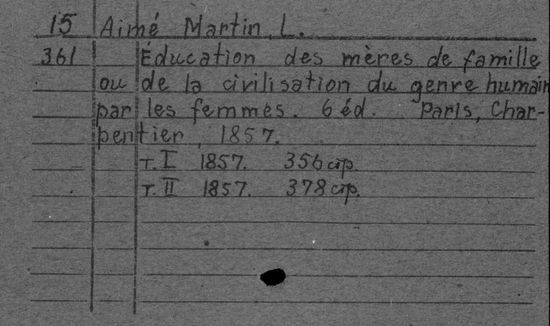 15 Aimé Martin, L.
361 Éducation des mères de famille
ou de la civilisation du genre humain
par les femmes. 6 éd. Paris, Char-
pentier, 1857.
т. I 1857. 356 стр.
т. II 1857. 378 стр.